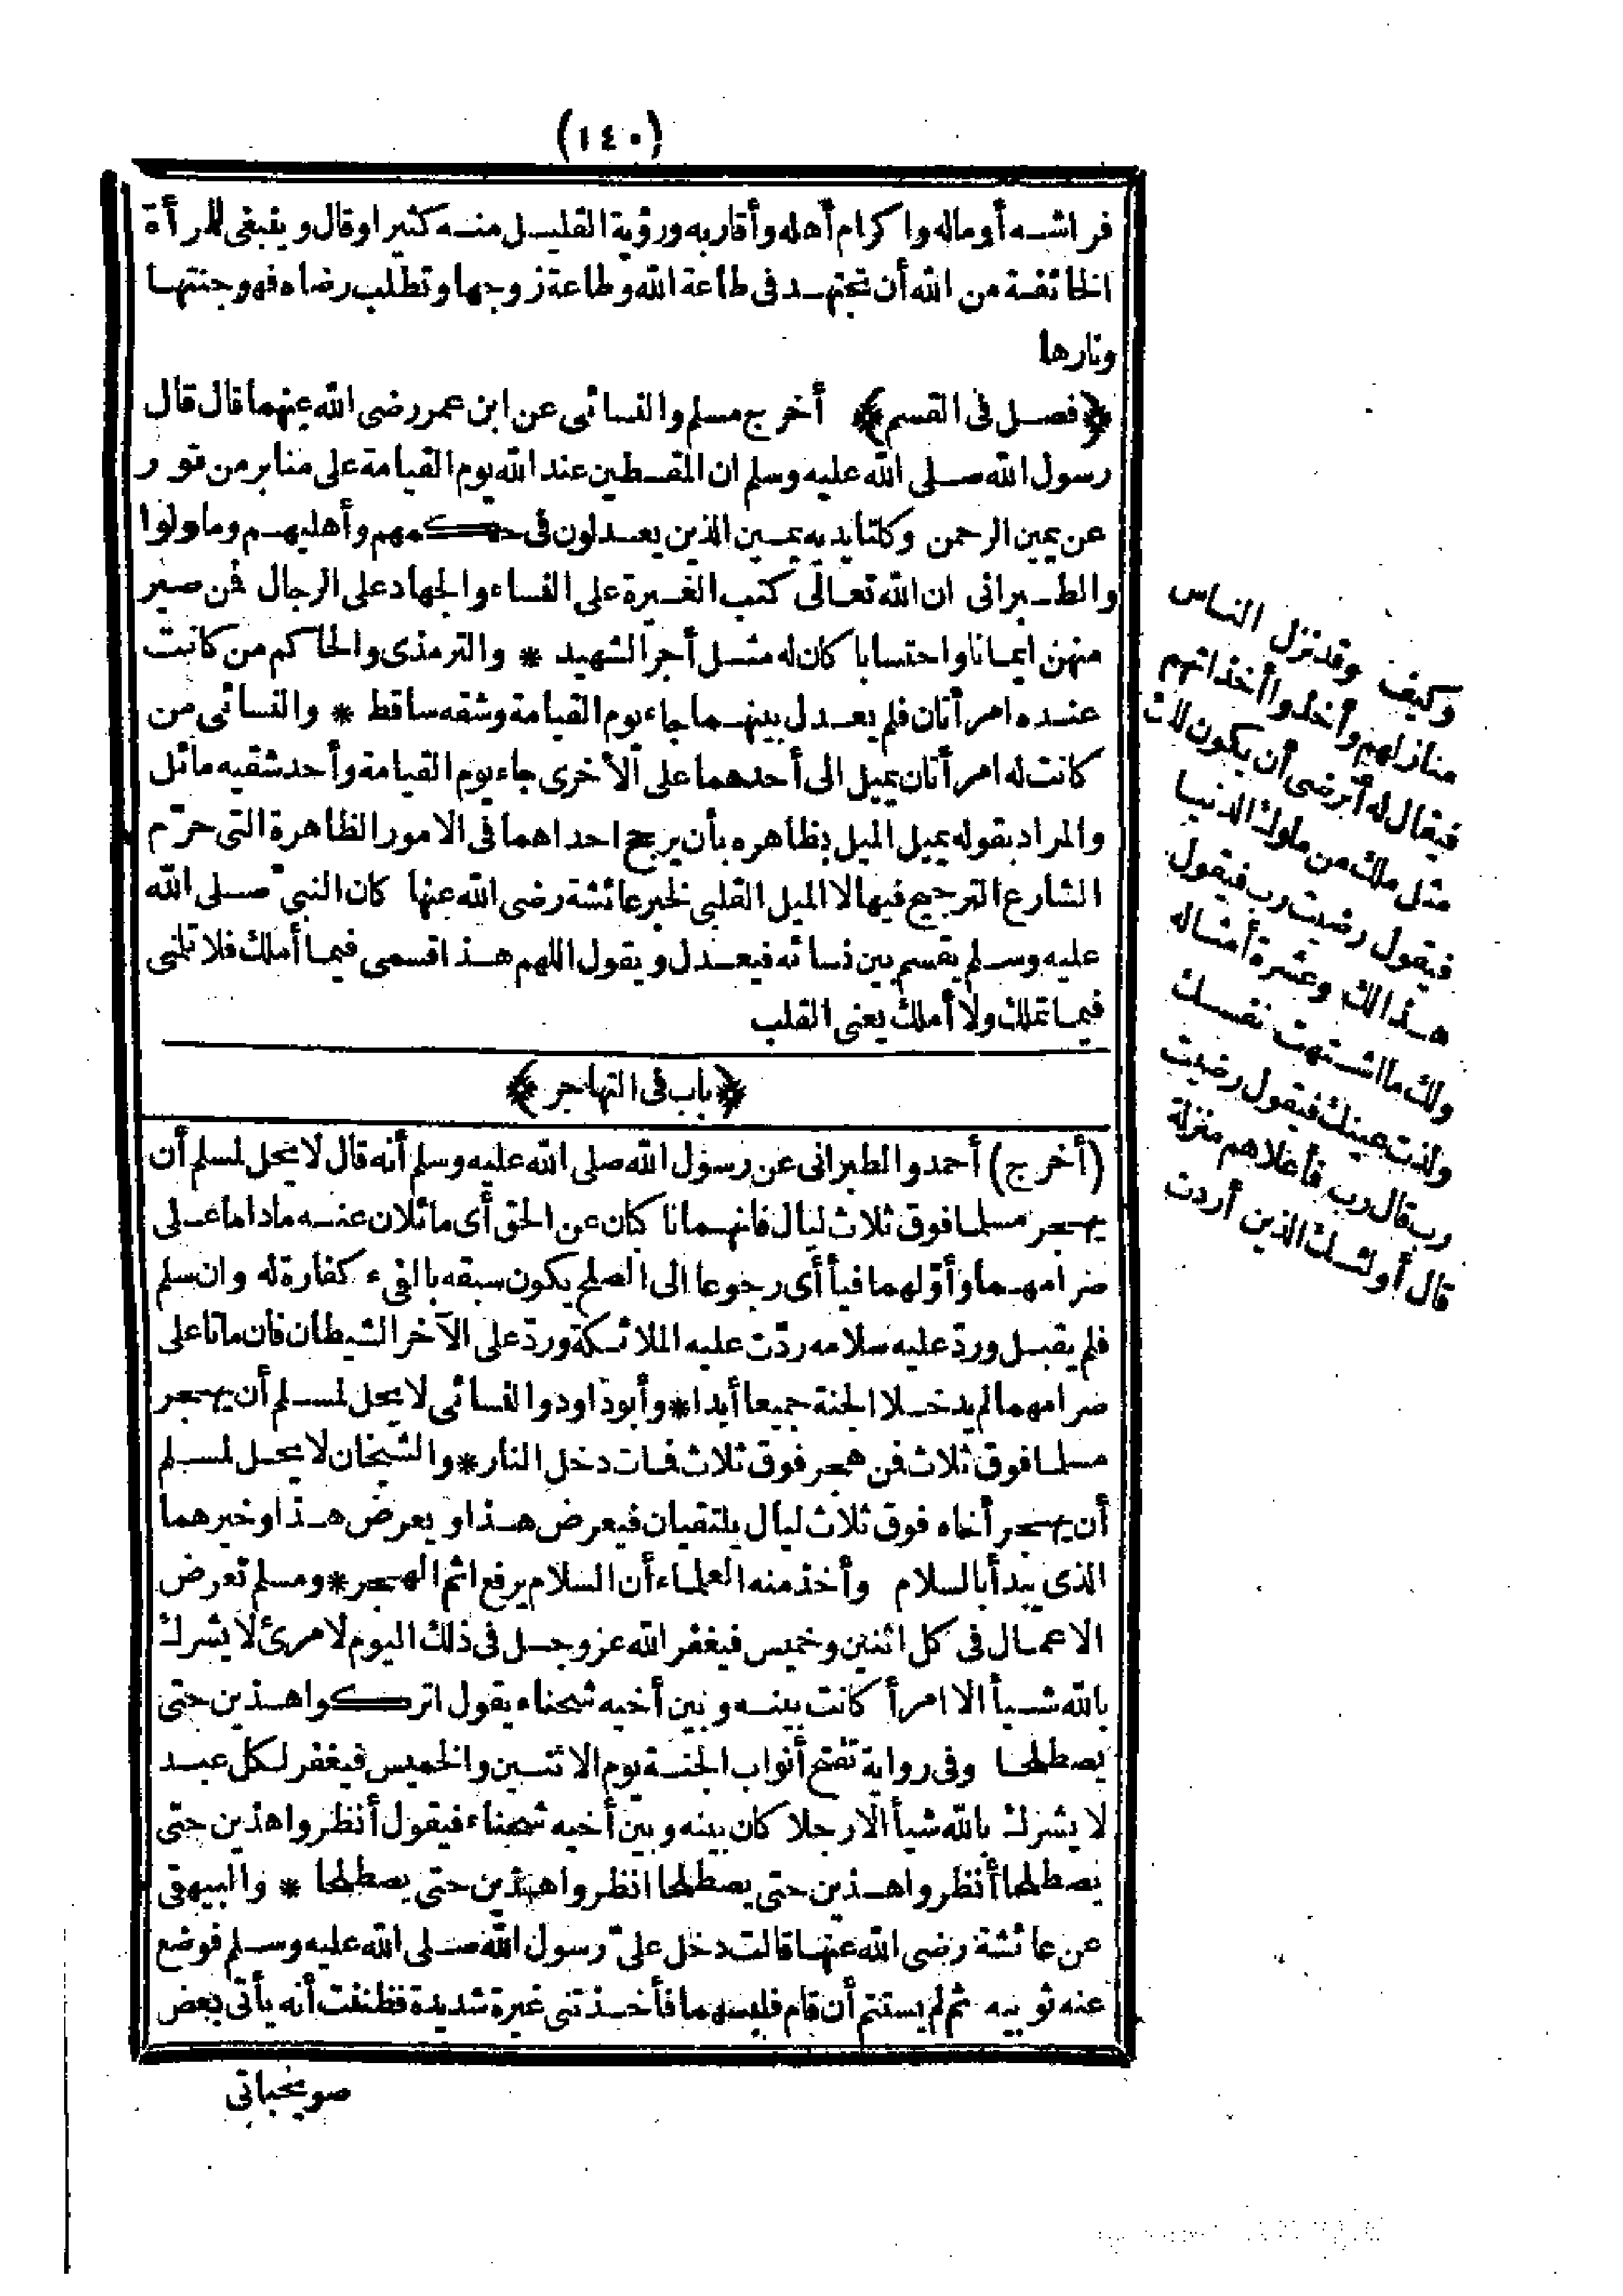 (١٤٠)
فراشه أو ماله واكرام أهله وأقاربه ورؤية القليل منه كثيرا وقال وينبغى للمرأة
الخائفة من الله أن تجتهد فى طاعة الله وطاعة زوجها وتطلب رضاه فهو جنتها
ونارها
﴿فصل فى القسم﴾ أخرج مسلم والنسائى عن ابن عمر رضى الله عنهما قال قال
رسول الله صلى الله عليه وسلم ان المقسطين عند الله يوم القيامة على منابر من نور
عن يمين الرحمن وكلتا يديه يمين الذين يعدلون فى حكمهم وأهليهم وما ولوا
والطبرانى ان الله تعالى كتب الغيرة على النساء والجهاد على الرجال فمن صبر
منهن ايمانا واحتسابا كان له مثل أجر الشهيد * والترمذى والحاكم من كانت
عنده امرأتان فلم يعدل بينهما جاء يوم القيامة وشقه ساقط * والنسائى من
كانت له امرأتان يميل الى أحدهما على الأخرى جاء يوم القيامة وأحد شقيه مائل
والمراد بقوله يميل الميل بظاهره بأن يرجح احداهما فى الامور الظاهرة التى حرّم
الشارع الترجيح فيها لا الميل القلبى لخبر عائشة رضى الله عنها كان النبىّ صلى الله
عليه وسلم يقسم بين نسائه فيعدل ويقول اللهم هذا قسمى فيما أملك فلا تلمنى
فيما تملك ولا أملك يعنى القلب
﴿باب فى التهاجر﴾
(أخرج) أحمد والطبرانى عن رسول الله صلى الله عليه وسلم أنه قال لا يحل لمسلم أن
يهجر مسلما فوق ثلاث ليال فانهما ناكبان عن الحق أى مائلان عنه ماداما على
ضرامهما وأوّلهما فيأ أى رجوعا الى الصلح يكون سبقه بالفىء كفارة له وان سلم
فلم يقبل وردّ عليه سلامه ردّت عليه الملائكة وردّ على الآخر الشيطان فان ماتا على
ضرامهما لم يدخلا الجنة جميعا أبدا * وأبو داود والنسائى لا يحل لمسلم أن يهجر
مسلما فوق ثلاث فمن هجر فوق ثلاث فمات دخل النار * والشيخان لا يحل لمسلم
أن يهجر أخاه فوق ثلاث ليال يلتقيان فيعرض هذا ويعرض هذا وخيرهما
الذى يبدأ بالسلام وأخذ منه العلماء أن السلام يرفع اثم الهجر * ومسلم تعرض
الاعمال فى كل اثنين وخميس فيغفر الله عز وجل فى ذلك اليوم لامرئ لا يشرك
بالله شيأ الا امرأ كانت بينه وبين أخيه شحناء يقول اتركوا هذين حتى
يصطلحا وفى رواية تفتح أبواب الجنة يوم الاثنين والخميس فيغفر لكل عبد
لا يشرك بالله شيأ الا رجلا كان بينه وبين أخيه شحناء فيقول أنظروا هذين حتى
يصطلحا أنظروا هذين حتى يصطلحا انظروا هذين حتى يصطلحا * والبيهقى
عن عائشة رضى الله عنها قالت دخل علىّ رسول الله صلى الله عليه وسلم فوضع
عنه ثوبيه ثم لم يستتم أن قام فلبسهما فأخذتنى غيرة شديدة فظننت أنه يأتى بعض
صويحباتى
وكيف وقد نزل الناس
منازلهم وأخذوا أخذاتهم
فيقال له أترضى أن يكون لك
مثل ملك من ملوك الدنيا
فيقول رضيت رب فيقول
هذا لك وعشرة أمثاله
ولك ما اشتهت نفسك
ولذت عينك فيقول رضيت
رب قال رب فأعلاهم منزلة
قال أولئك الذين أردت